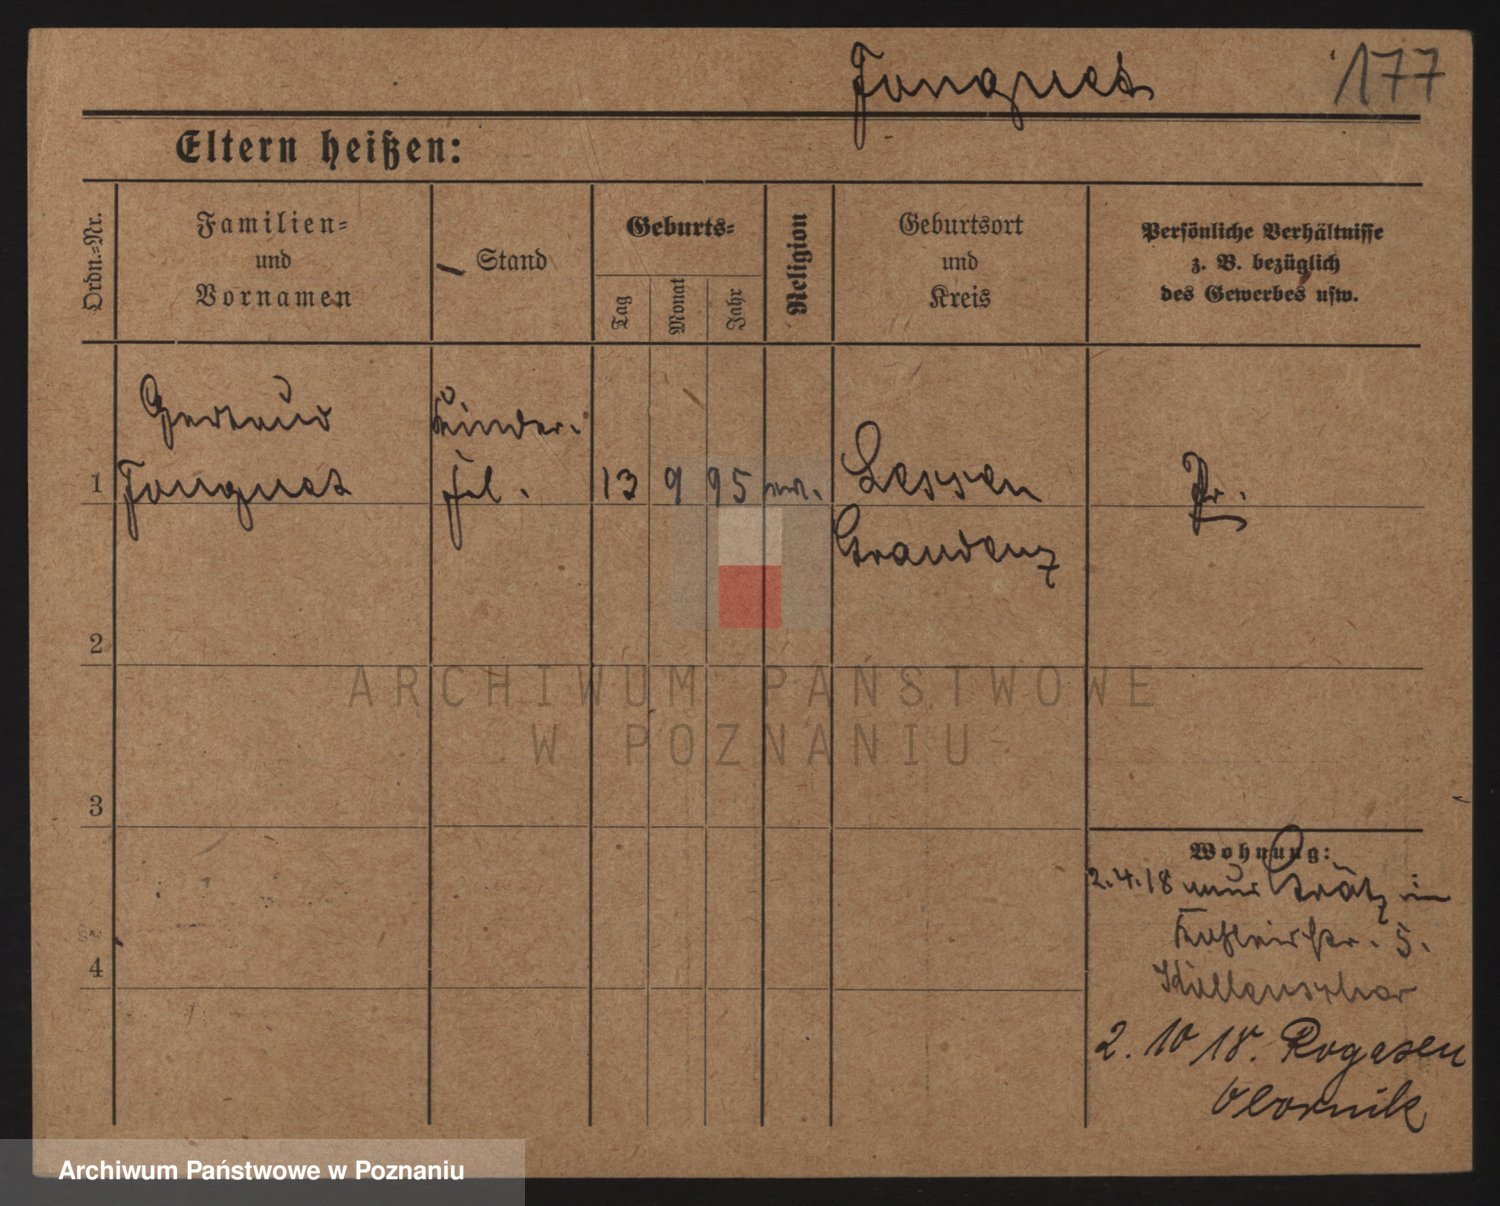 Fouquet 177
Eltern heißen:
Ordn.-Nr.
Familien-
und
Vornamen
Stand
Geburts-
Tag
Monat
Jahr
Religion
Geburtsort
und
Kreis
Persönliche Verhältnisse
z. B. bezüglich
des Gewerbes usw.
Gertrud Kinder-
1 Fouquet frl. 13 9 95 Lessen Pr.
Graudenz
2
3
4
Wohnung:
2.4.18 Grätz
5.
Willenscher
2. 10 18. Rogasen
Obornik
ARCHIWUM PAŃSTWOWE
W POZNANIU
Archiwum Państwowe w Poznaniu